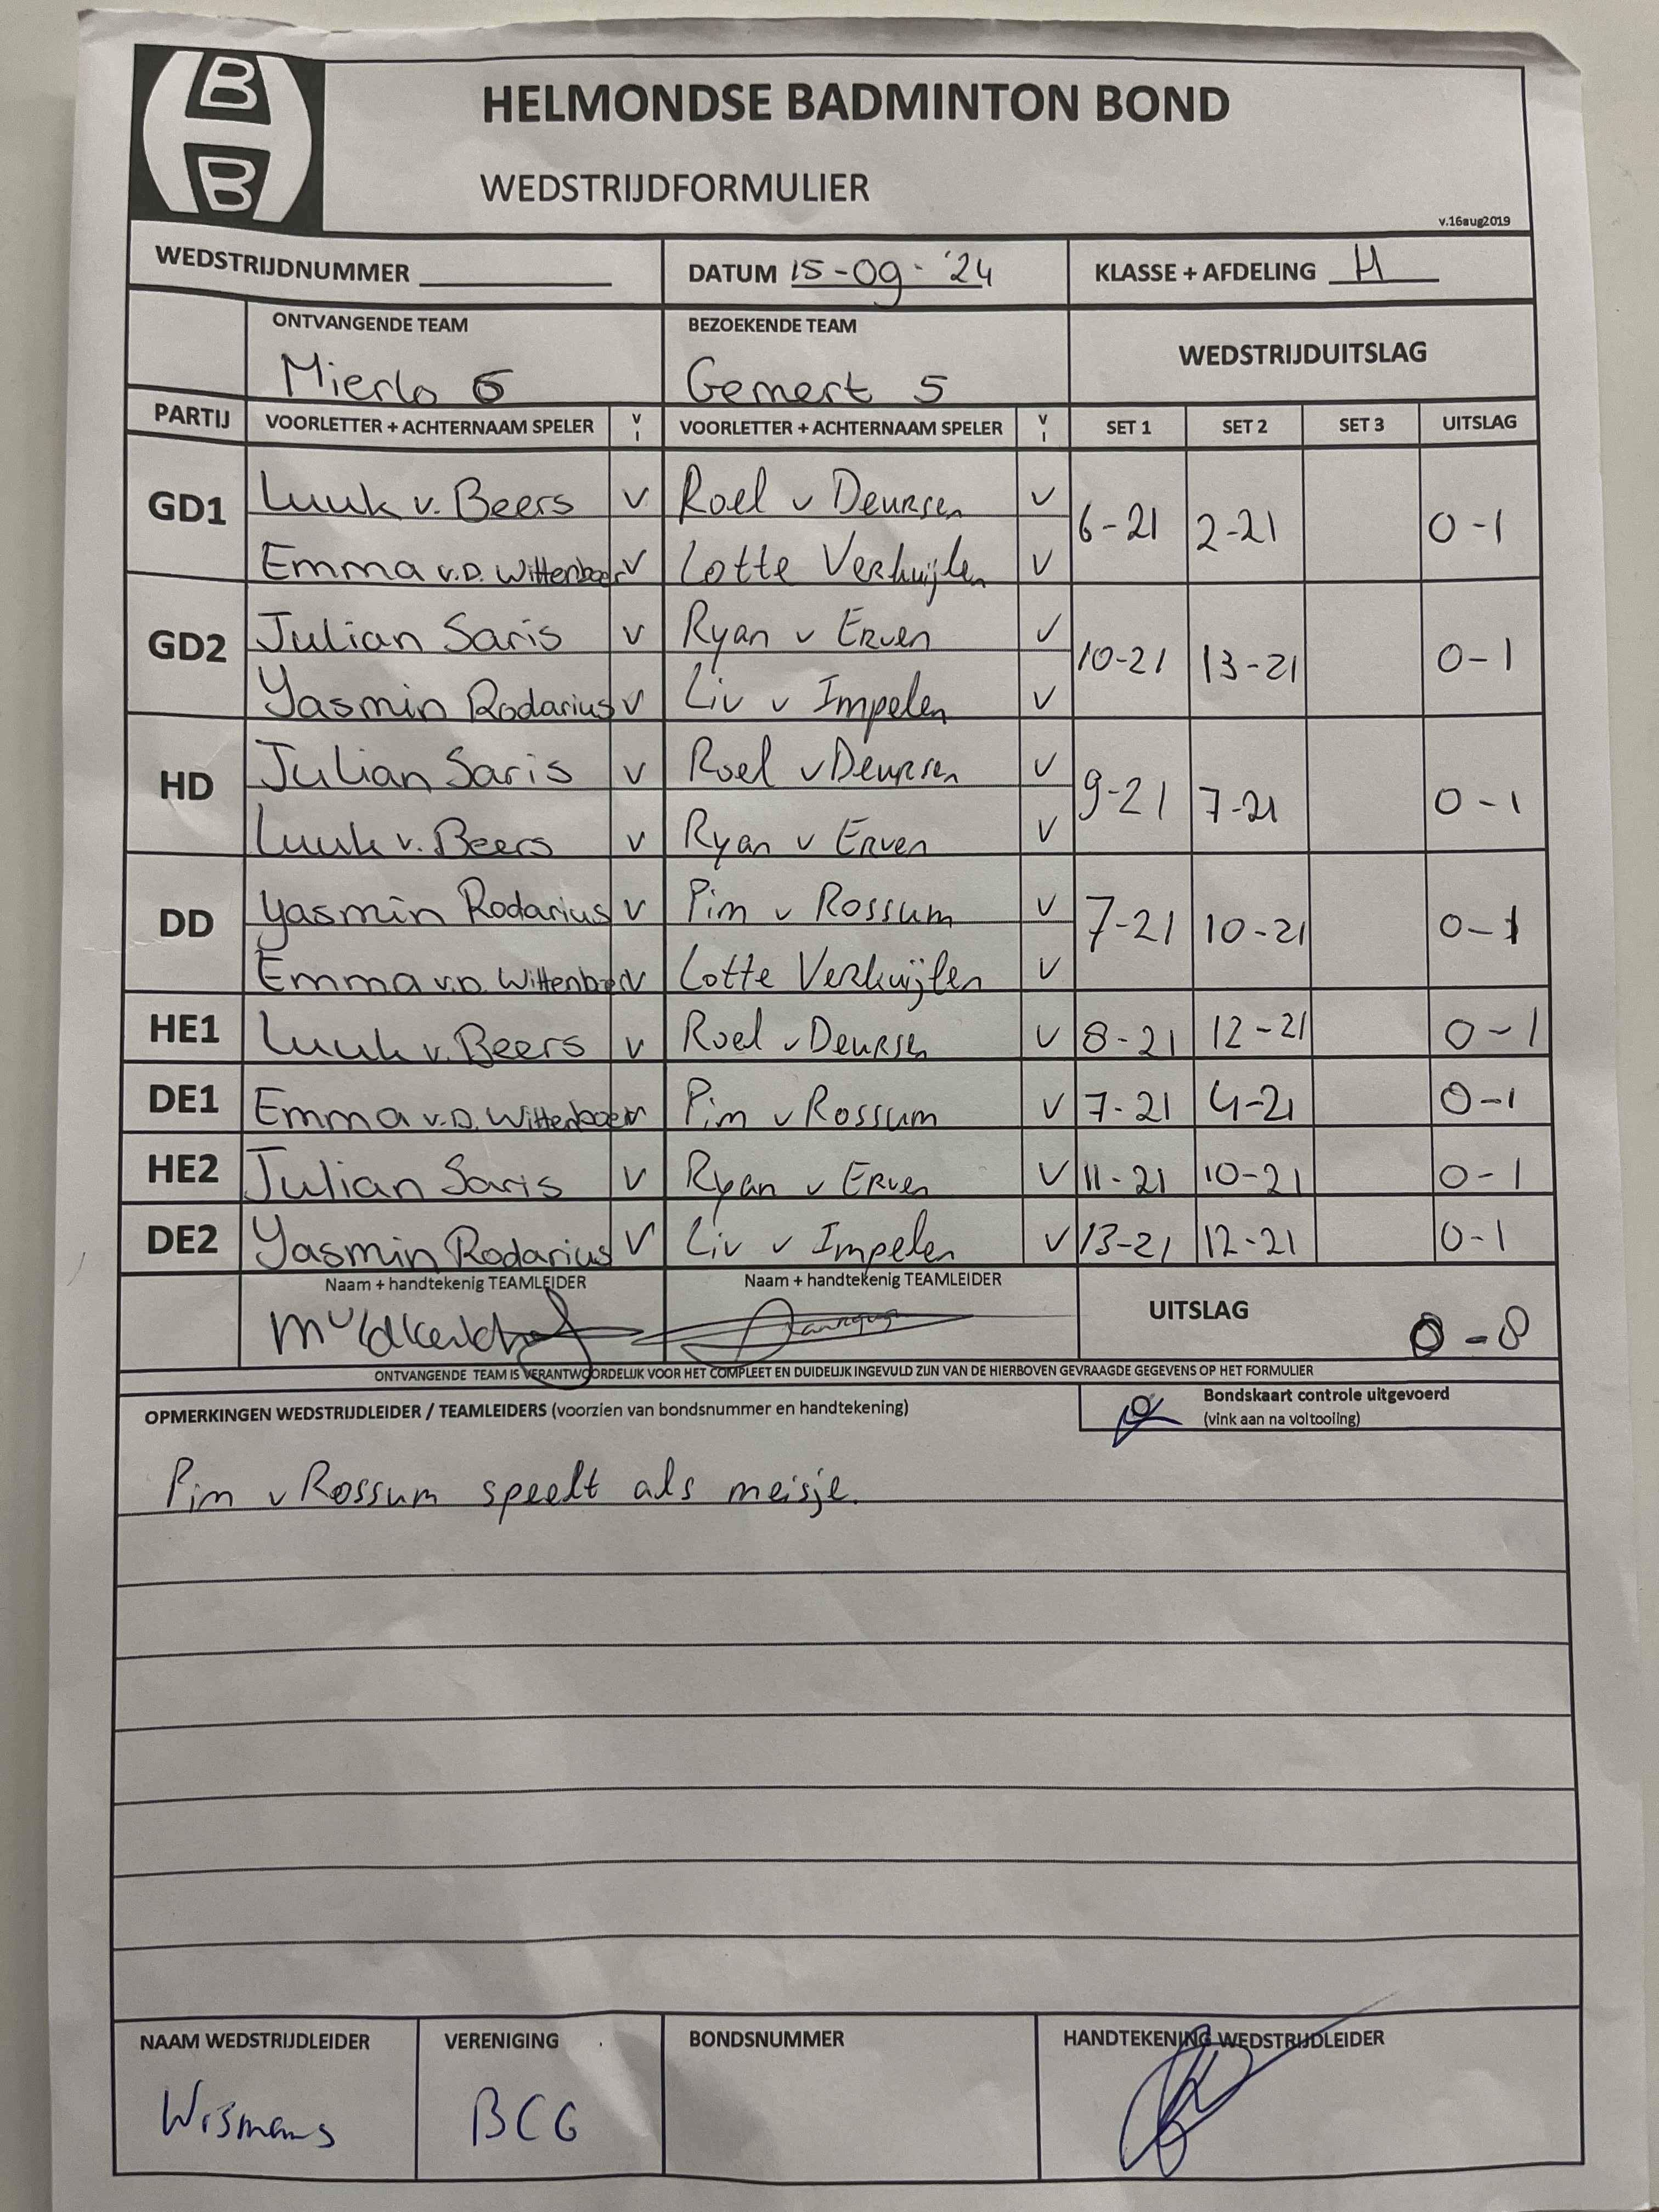 B
B
HELMONDSE BADMINTON BOND
WEDSTRIJDFORMULIER
v.16aug2019
WEDSTRIJDNUMMER DATUM 15-09-'24 KLASSE + AFDELING H
ONTVANGENDE TEAM BEZOEKENDE TEAM WEDSTRIJDUITSLAG
Mierlo 6 Gemert 5
PARTIJ VOORLETTER + ACHTERNAAM SPELER V I VOORLETTER + ACHTERNAAM SPELER V I SET 1 SET 2 SET 3 UITSLAG
GD1 Luuk v. Beers V Roel v Deursen V 6-21 2-21 0-1
Emma v.D. Wittenboer V Lotte Verkuijlen V
GD2 Julian Saris V Ryan v Erven V 10-21 13-21 0-1
Yasmin Rodarius V Liv v Impelen V
HD Julian Saris V Roel v Deursen V 9-21 7-21 0-1
Luuk v. Beers V Ryan v Erven V
DD Yasmin Rodarius V Pim v Rossum V 7-21 10-21 0-1
Emma v.D. Wittenboer V Lotte Verkuijlen V
HE1 Luuk v. Beers V Roel v Deursen V 8-21 12-21 0-1
DE1 Emma v.D. Wittenboer V Pim v Rossum V 7-21 4-21 0-1
HE2 Julian Saris V Ryan v Erven V 11-21 10-21 0-1
DE2 Yasmin Rodarius V Liv v Impelen V 13-21 12-21 0-1
Naam + handtekenig TEAMLEIDER Naam + handtekenig TEAMLEIDER UITSLAG 0-8
ONTVANGENDE TEAM IS VERANTWOORDELIJK VOOR HET COMPLEET EN DUIDELIJK INGEVULD ZIJN VAN DE HIERBOVEN GEVRAAGDE GEGEVENS OP HET FORMULIER
OPMERKINGEN WEDSTRIJDLEIDER / TEAMLEIDERS (voorzien van bondsnummer en handtekening) Bondskaart controle uitgevoerd
(vink aan na voltooiing)
Pim v Rossum speelt als meisje.
NAAM WEDSTRIJDLEIDER VERENIGING BONDSNUMMER HANDTEKENING WEDSTRIJDLEIDER
Wismans BCG